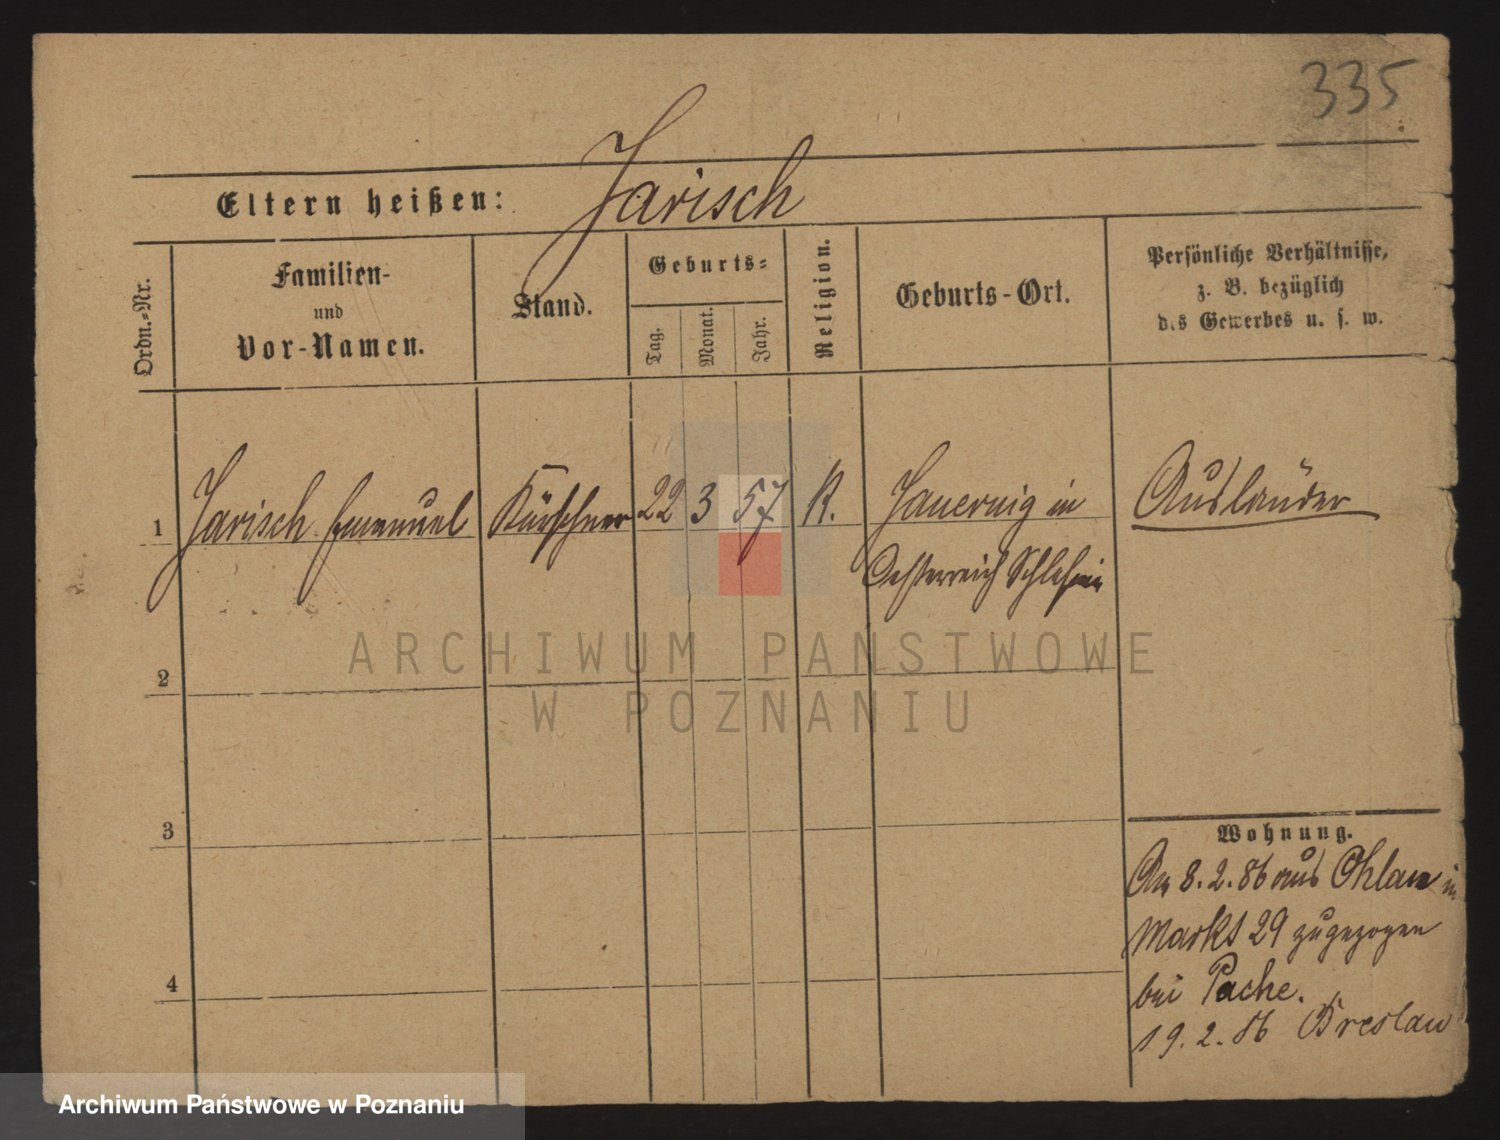 335
Eltern heißen: Jarisch
Ordn.-Nr.
Familien-
und
Vor-Namen.
Stand.
Geburts-
Tag.
Monat.
Jahr.
Religion.
Geburts-Ort.
Persönliche Verhältnisse,
z. B. bezüglich
des Gewerbes u. s. w.
1 Jarisch Emanuel Kürschner 22 3 57 K. Jauernig in Ausländer
Oesterreich Schlesien
ARCHIWUM PAŃSTWOWE
W POZNANIU
2
3
4
Wohnung.
Am 8.2.86 aus Ohlau in
Markt 29 zugezogen
bei Pache.
19.2.86 Breslau
Archiwum Państwowe w Poznaniu